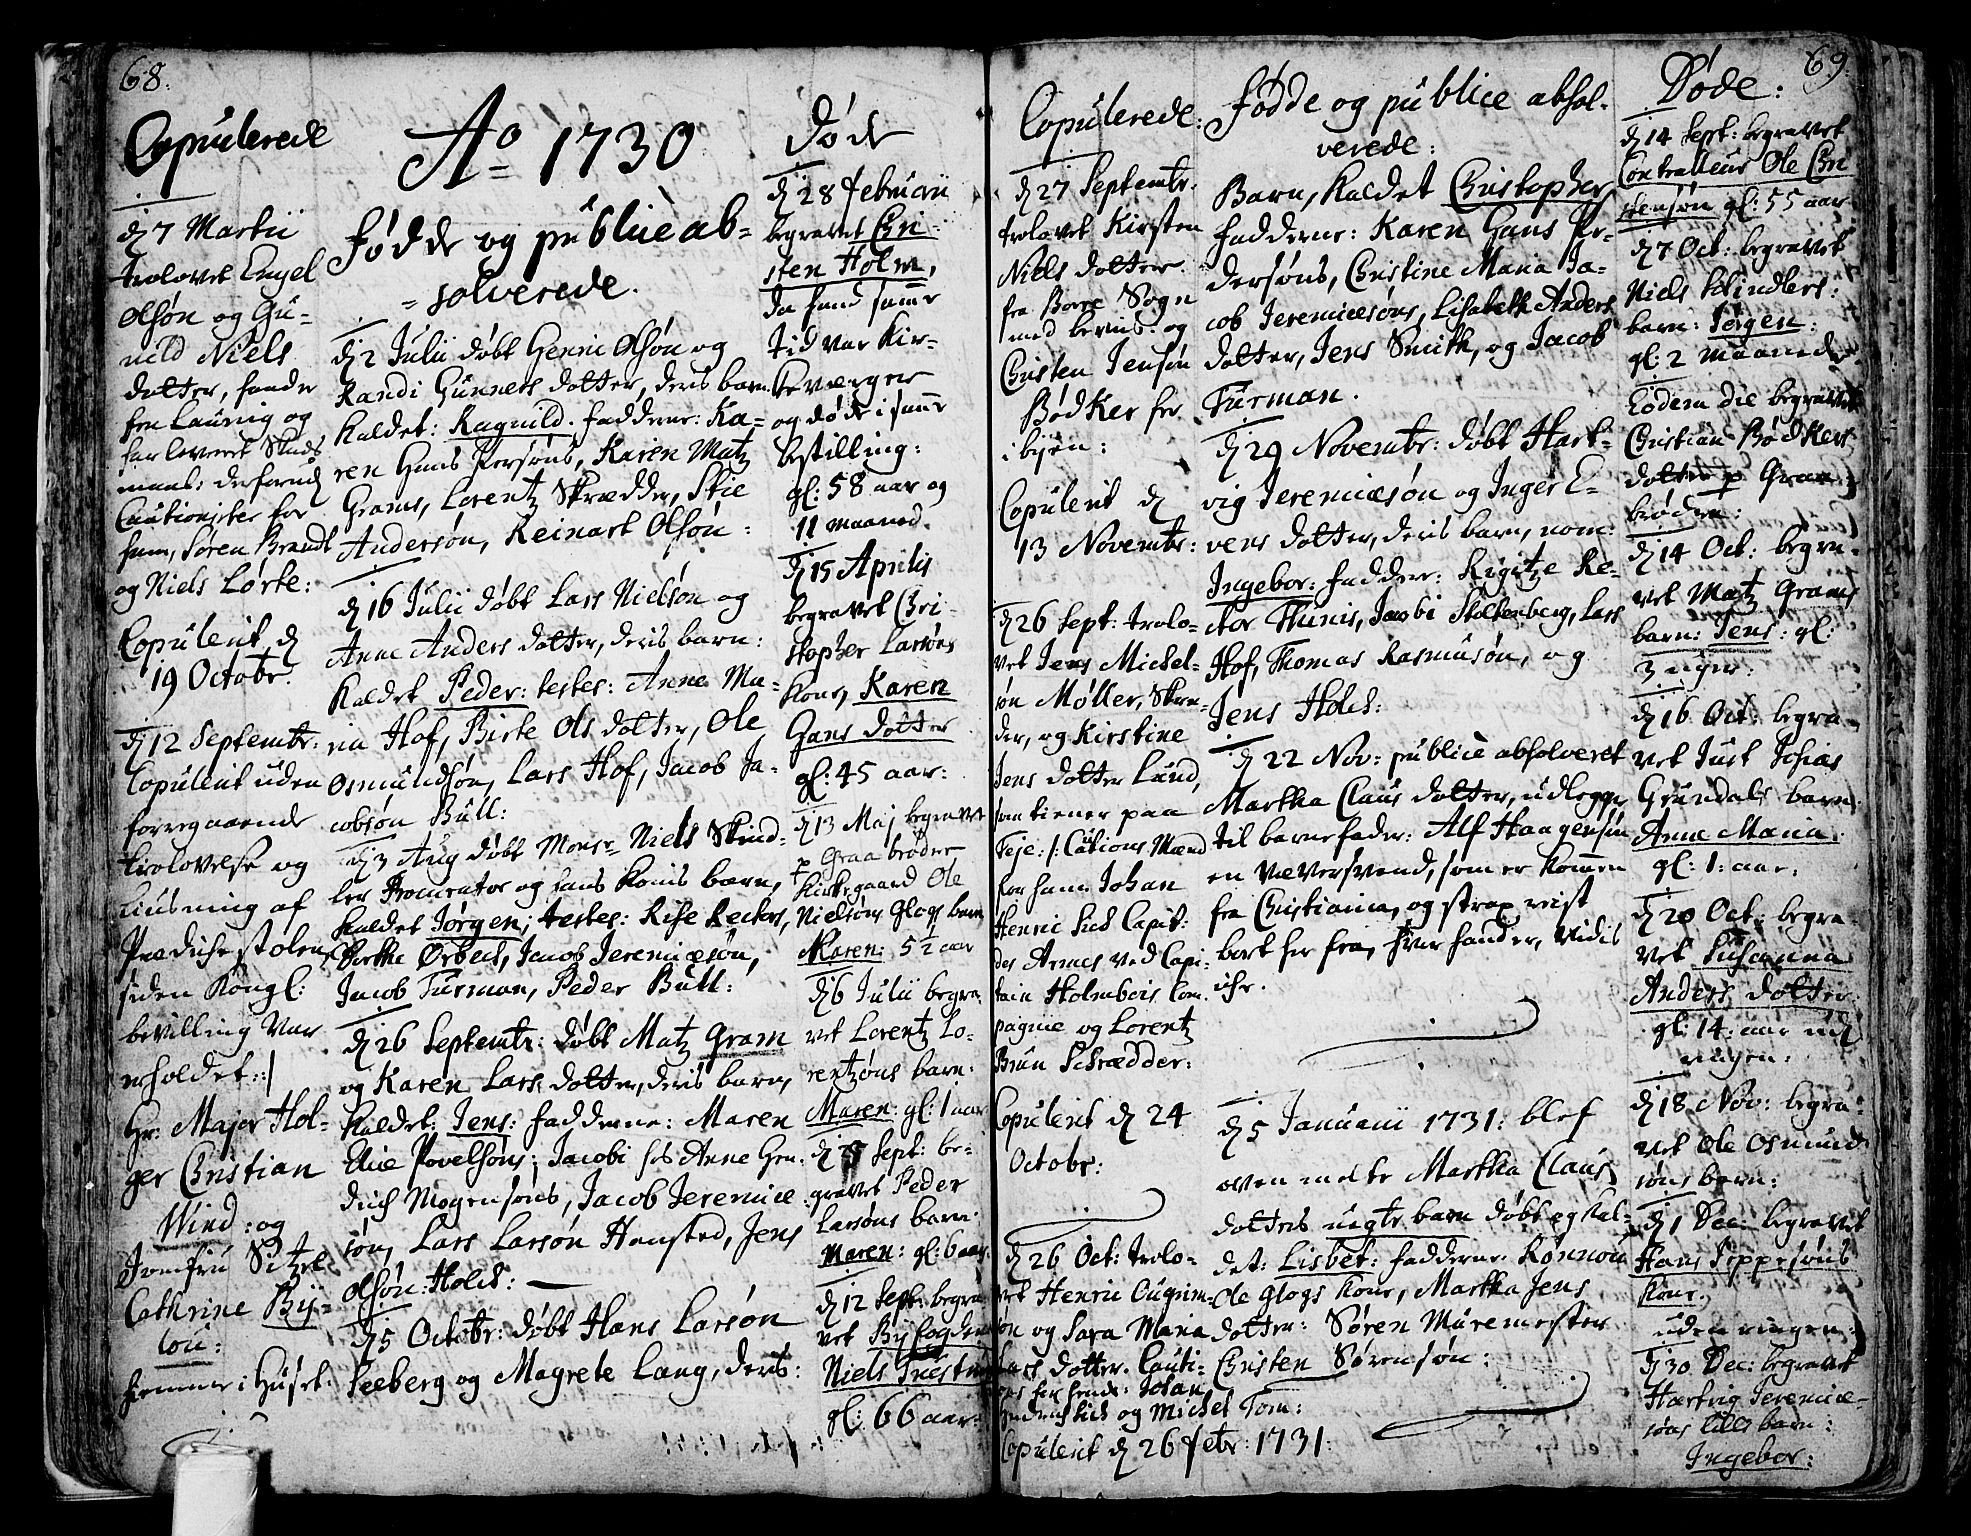 68.
Copulerede
d 7 Martii
trolovet Engel
Olsøn og Gu-
nild Niels
datter, hande
fra Laurvig og
har leveret Skuds
maal: derforuden
Cautionister for
ham, Søren Brandt
og Niels Lørke:
Copulerit d
19 Octobr.
d 12 Septembr:
Copulerit uden
forregaaende
trolovelse og
liusning af
Prædichestolen
siden Kongl:
bevilling var
erholdet:/
Hr: Major Hol-
ger Christian
Wind: og
Jomfru Sitzel
Cathrine Bÿ-
lou:
hiemme i Huset.
Ao 1730
fødde og publicè ab-
solverede.
d 2 Julii døbt Henric Olsøn og
Randi Gunners dotter, deris barn
Kaldet: Ragnild. faddere: Ka-
ren Hans Persøns, Karen Matz
Grams, Lorentz Skrædder, Stie
Andersøn, Reinart Olsøn:
d 16 Julii døbt Lars Nielsøn og
Anne Anders dotter, deris barn:
Kaldet Peder: testes: Anne Ma-
ria Hof, Birte Ols dotter, Ole
Osmundsøn, Lars Hof, Jacob Ja-
cobsøn Bull:
d 3 Aug døbt Monsr Niels Skind-
ler Promentor og hans Konis barn,
Kaldet Jørgen; testes: Rise Rectors,
Dorthe Orbech, Jacob Jeremiæsøn,
Jacob Furman, Peder Bull:
d 26 Septemtr: døbt Matz Gram
og Karen Lars dotter, deris barn,
Kaldet: Jens: fadderne: Maren
Elice Povelsøns; Jacobi hos Anne Hen-
drich Mogensøns, Jacob Jeremiæ
søn, Lars Larsøn Hansted, Jens
Olsøn Holch:
d 5 Octobr: døbt Hans Larsøn
Seeberg og Magrete Lang, deris:
døde
d 28 februarii
begravet Chri-
sten Holm,
da hand samme
tid var Kir-
keværger
og døde i samme
bestilling:
gl: 58 aar og
11 maaned.
d 15 Aprilis
begravet Chri-
stopher Larsøns
Kone, Karen
Hans dotter
gl: 45 aar:
d 13 Maj begravet
p Graabrødre
Kirkegaard Ole
Nielsøns Glogs barn
Maren: 5½ aar
d 6 Julii begra-
vet Lorentz Lo-
rentzøns barn:
Maren: gl: 1 aar
d Sept: be-
gravet Peder
Larsøns barn
Maren: gl: 6 aar.
d 12 Sept: begra-
vet Bÿfogden
Niels
gl: 66 aar:
69.
Copulerede:
d 27 Septembr.
trolovet Kirsten
Niels dotter
fra Borre Sogn
med beviis og
Christen Jensøn
Bødker her
i byen:
Copulerit d
13 Novembr:
d 26 Sept: trolo-
vet Jens Michel-
søn Møller, Skræ-
der, og Kirstine
Jens dotter Lund,
som tiener paa
Teje:/: Cautions Mænd
for ham Johan
Henric Capit:
des Armes ved Capi-
tain Holmbois Com-
pagnie og Lorentz
Brun Schrædder:
Copulerit d 24
Octobr:
d 26 Oct: trolo-
vet Henric
søn og Sara Maria
Lars dotter. Cauti-
ons for hende: Johan
og Michel Torn:
Copulerit d 26 febr: 1731:
fødde og publice absol-
verede:
Barn, Kaldet Christopher
fadderne: Karen Hans Pe-
dersøns, Christine Maria Ja-
cob Jeremiæsøns, Lisabeth Anders
dotter, Jens Smith, og Jacob
Furman.
d 29 Novembr: døbt Hart-
vig Jeremiæsøn og Inger E-
vens dotter, deris barn, nom:
Ingebor: fadder: Rigitze Re-
ctor Thunis, Jacobi Stoltenberg, Lars
Hof, Thomas Rasmusøn, og
Jens Holch:
d 22 Nov: publicè absolveret
Martha Claus dotter, udlegger
til barnefader: Alf Haagensøn
en væversvend, som er kommen
fra Christiania, og strax reist
bort her fra, hvor hand er, vidis
iche.
d 5 Januarii 1731: blef
oven melte Martha Claus
dotters uægte barn døbt og kal-
det: Lisbet: fadderne: Rønnou
Ole Glogs Kone, Martha Jens
dotter: Søren Muremester
Christen Sørensøn:
Døde:
d 14 Sept: begravet
Contralleur Ole Chri
stensøn gl: 55 aar
d 7 Oct: begravet
Niels Schindlers:
barn: Jørgen:
gl: 2 maaneder
Eodem die begravet
Christian Bødkers
dotter p Graa-
brødre:
d 14 Oct: begra-
vet Matz Grams
barn: Jens: gl:
3 uger:
d 16 Oct: begra-
vet Just Tobias
Grundals barn
Anne Maria:
gl: 1: aar.
d 20 Oct: begra-
vet Susanna
Anders dotter
gl: 14: aar uden
ringen:
d 18 Nov: begra-
vet Ole Osmund
søns barn:
d 1 Dec: begravet
Hans Jeppesøns
Kone.
uden ringen:
d 30 Dec: begravet
Hartvig Jeremiæ-
søns lille barn:
Ingebor: